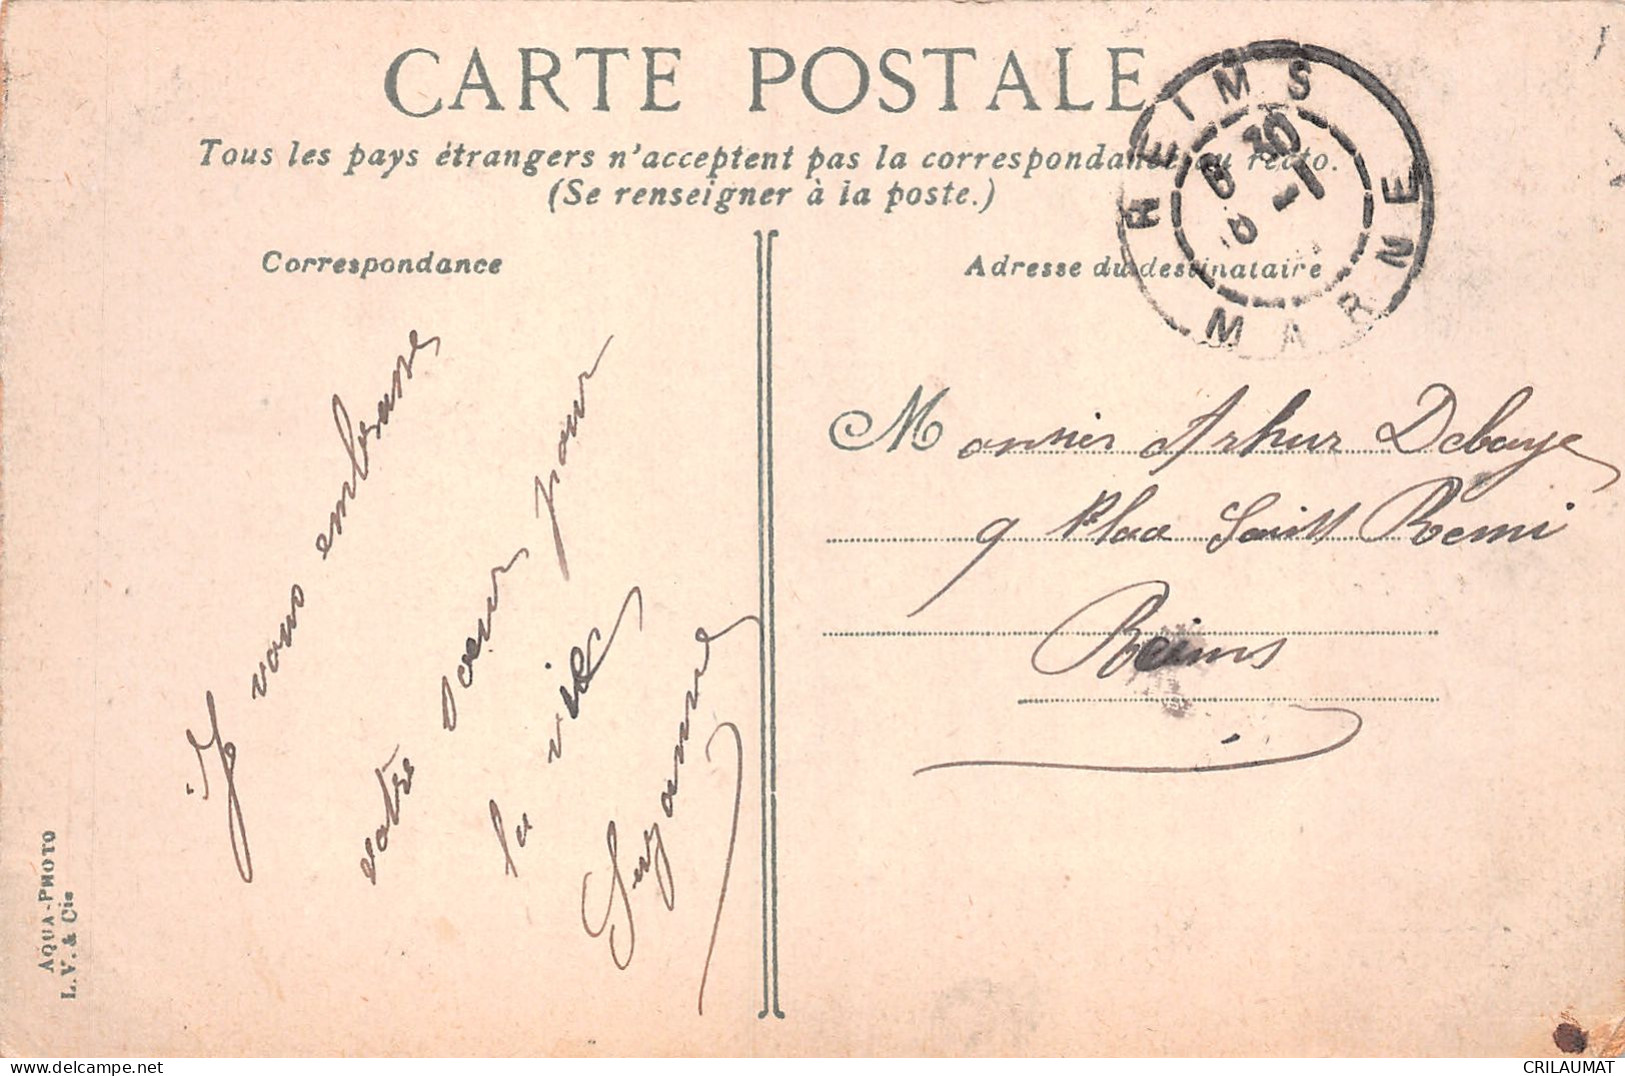 CARTE POSTALE
Tous les pays étrangers n'acceptent pas la correspondance au recto.
(Se renseigner à la poste.)
Correspondance
Adresse du destinataire
REIMS
6 30
MARNE
Je vous embrasse
votre soeur pour
la vie
Suzanne
Monsieur Arthur Debaye
9 Place Saint Remi
Reims
AQUA-PHOTO
L.V. & Cie
CRILAUMAT